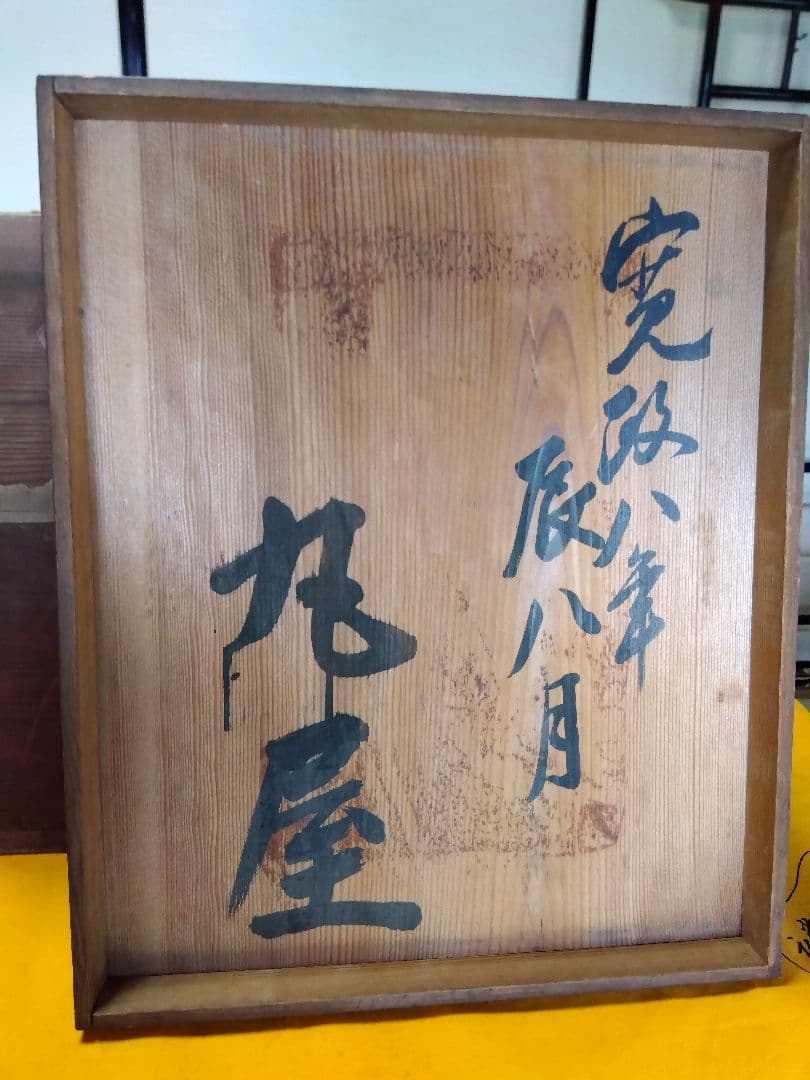 寛政八年
辰八月
丸屋